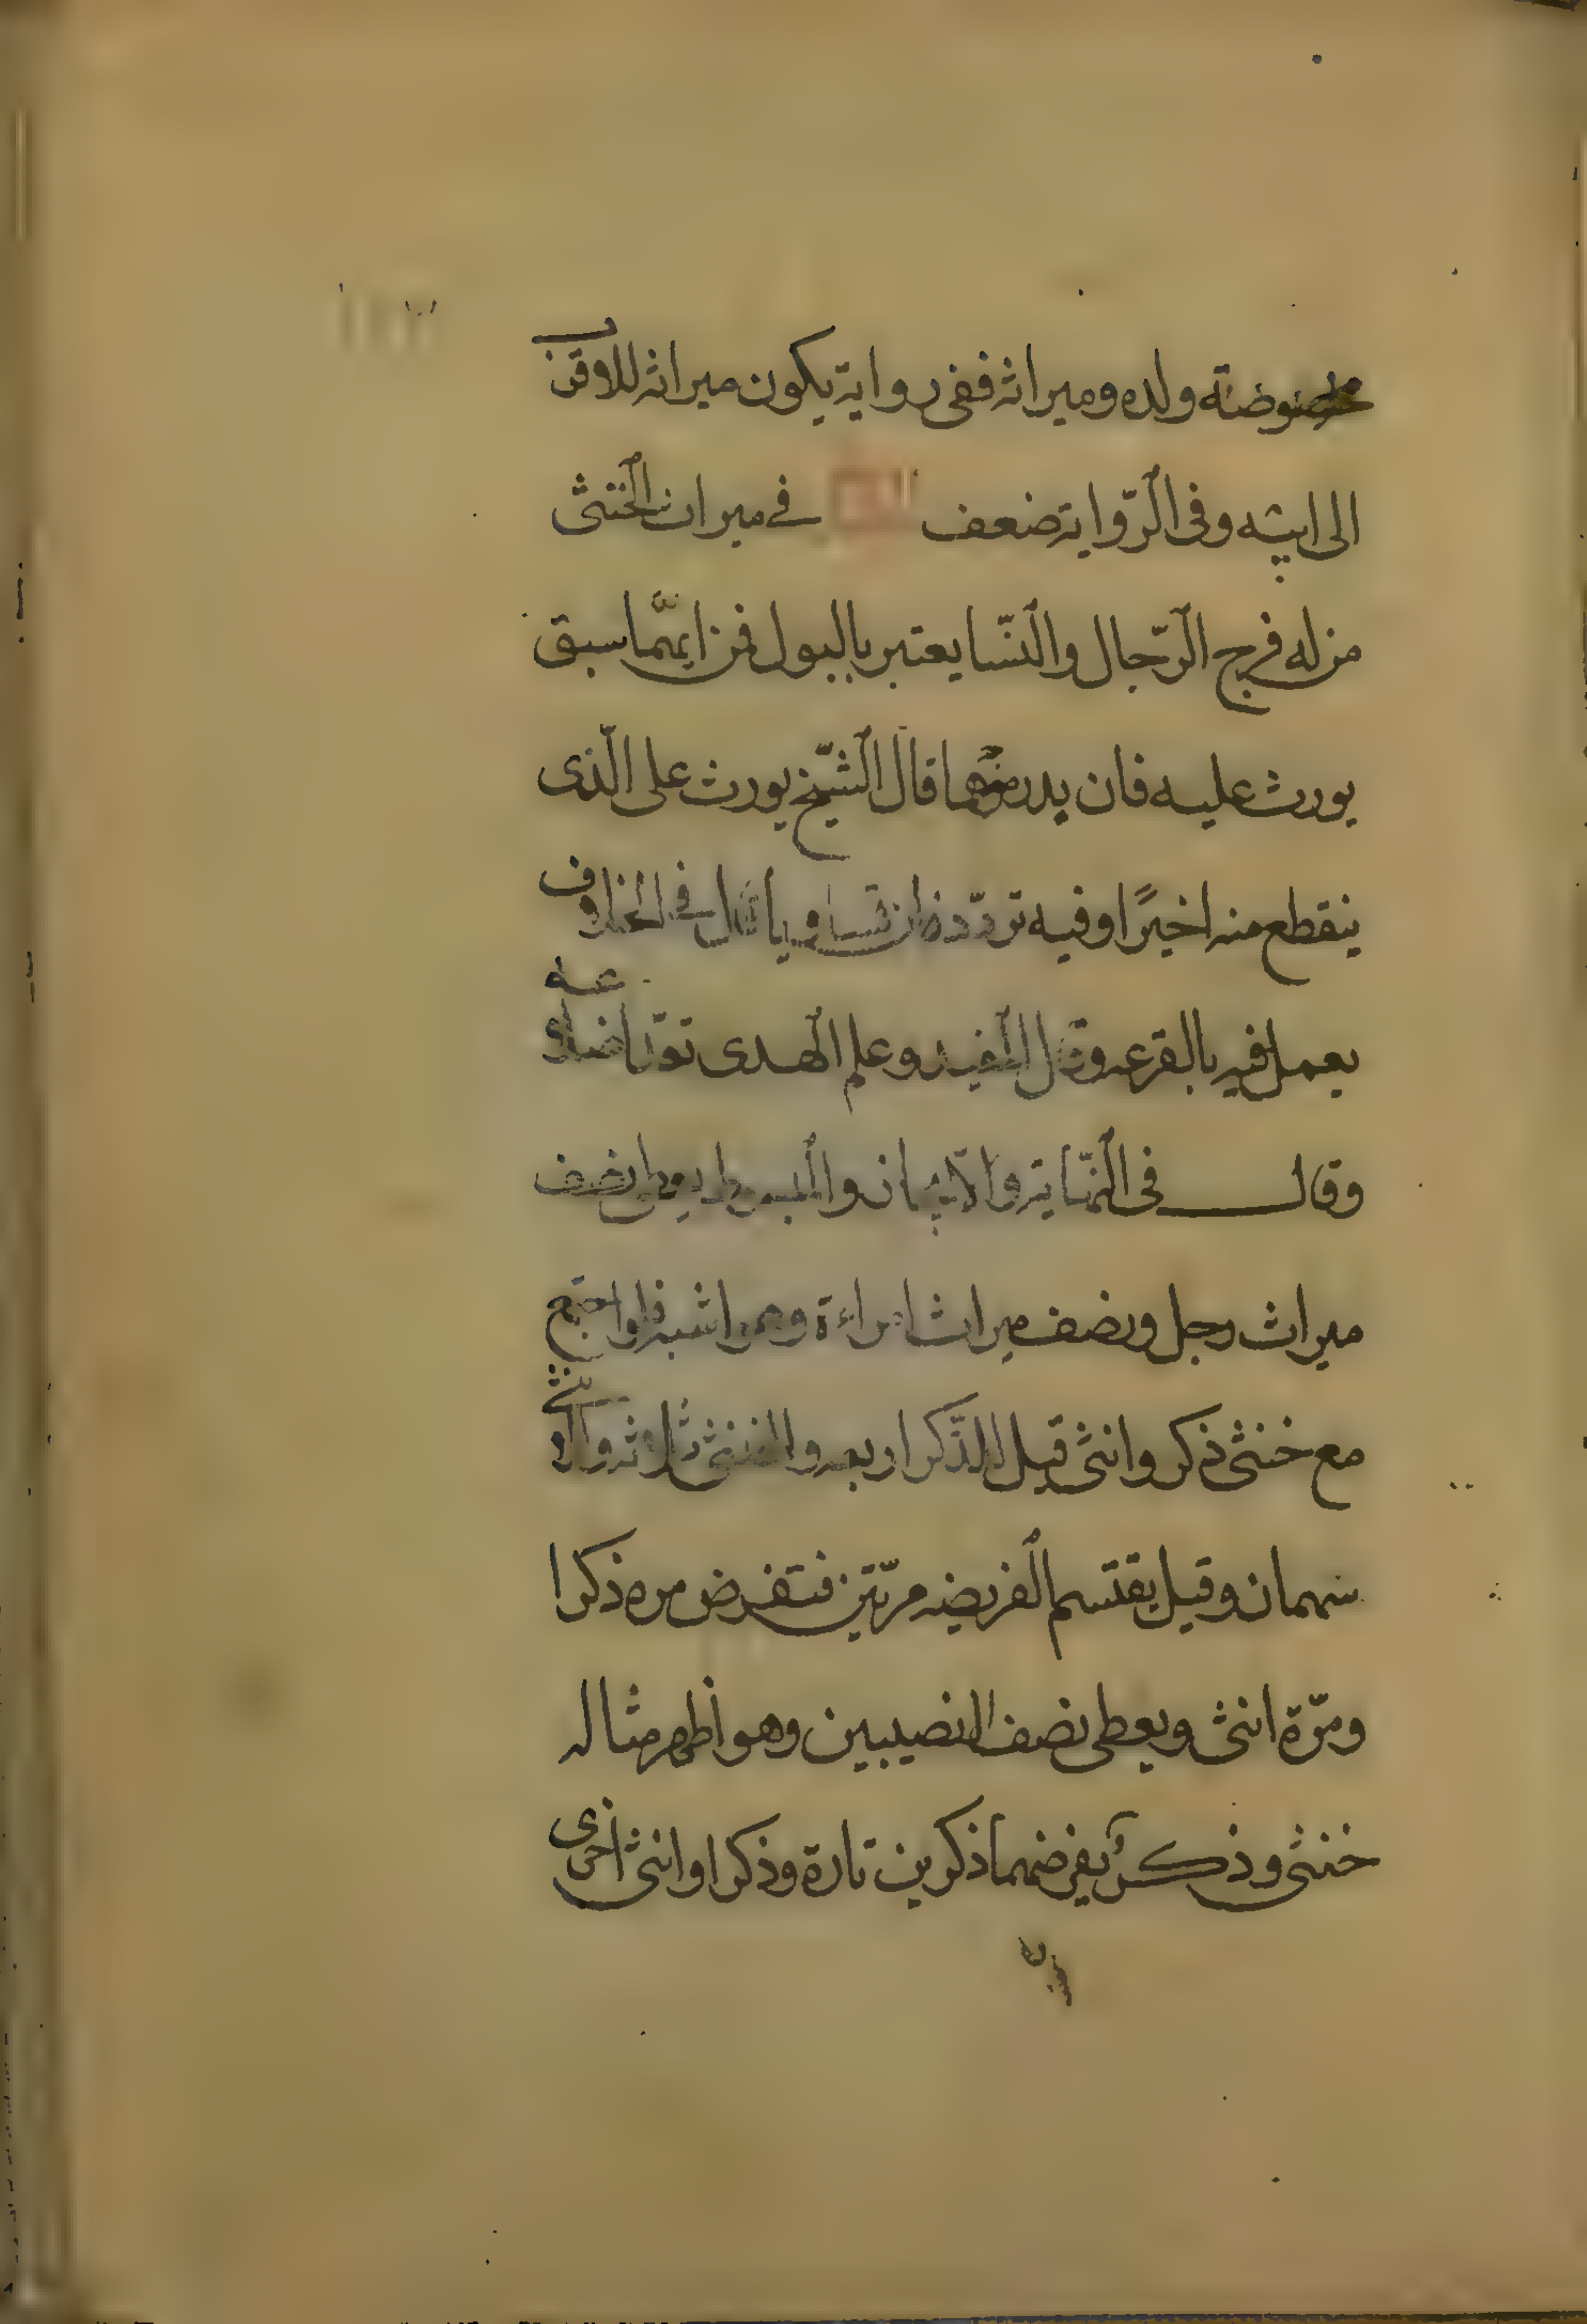 وميراثه ففى رواية يكون ميراثه للاقرب
الى ابيه وفى الرّواية ضعف فى ميراث الخنثى
من له فرج الرّجال والنّسا يعتبر بالبول فمن ايّهما سبق
يورث عليه فان بدر منهما قال الشّيخ يورث على الّذى
ينقطع منه اخيرًا وفيه تردّد فان تساويا قال فى الخلاف
يعمل فيه بالقرعه وقال المفيد وعلم الهدى تعدّ اضلاعه
وقال فى النّهاية والايجاز والمبسوط يعطى نصف
ميراث رجل ونصف ميراث امراءة وهو اشبه فلو اجتمع
مع خنثى ذكر وانثى قيل للذّكر اربعه وللخنثى ثلاثه وللانثى
سهمان وقيل يقتسم الفريضه مرّتين فتفرض مره ذكرا
ومرّة انثى ويعطى نصف النصيبين وهو أظهر مثاله
خنثى وذكر يفرضهما ذكرين تارة وذكرا وانثى اخرى